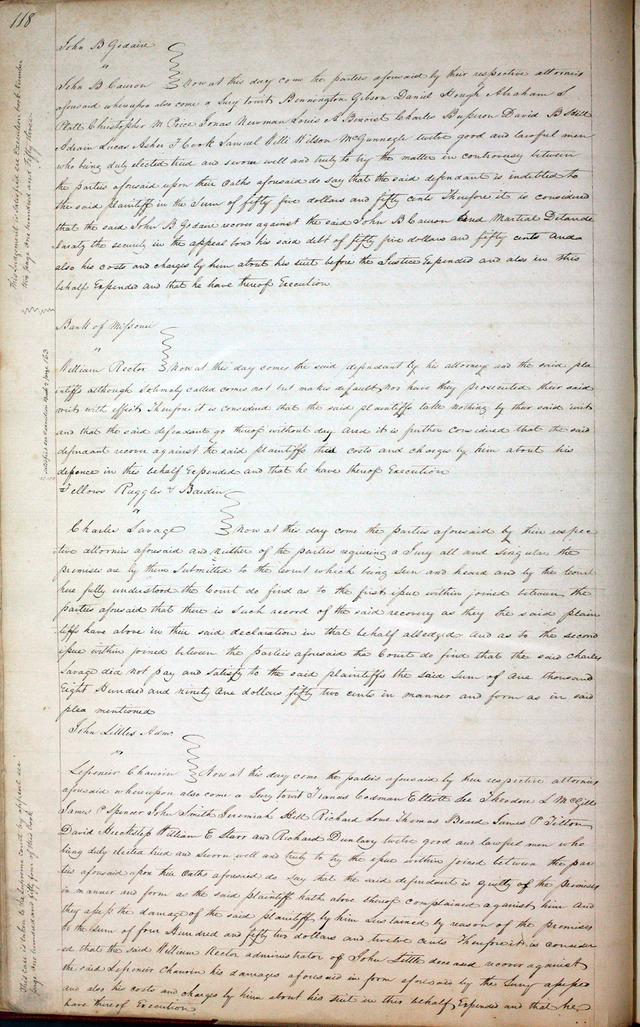 118
John B Godair
"
John B Cauron Now at this day come the parties aforesaid by their respective attornies
aforesaid whereupon also come a Jury towit Bennington Gibson Daniel Hough Abraham S
Platt Christopher M Price Jonas Newman Louis A Benoist Charles Bussron David B Still
Adrain Lucas Asher F Cook Samuel Willi Wilson McGunnegle twelve good and lawful men
who being duly elected tried and sworn well and truly to try the matter in controversy between
the parties aforesaid upon their Oaths aforesaid do say that the said defendant is indebted to
the said plaintiff in the Sum of fifty five dollars and fifty cents Therefore it is considered
that the said John B Godair recover against the said John B Cauron and Martial Detande
Laraty the security in the appeal bond his said debt of fifty five dollars and fifty cents and
also his costs and charges by him about his suit before the Justice Expended and also in this
behalf Expended and that he have thereof Execution
This Judgement is satisfied on Execution book number
two page one hundred and fifty three
Bank of Missouri
"
William Rector Now at this day comes the said defendant by his attorney and the said pla
intiffs although Solemnly called comes not but makes default, nor have they prosecuted their said
writ with effect Therefore it is considered that the said plaintiffs take nothing by their said writ
and that the said defendant go thereof without day And it is further considered that the said
defendant recover against the said plaintiffs his costs and charges by him about his
defence in this behalf Expended and that he have thereof Execution
satisfied on Execution Book 2 page 163
Fellows Ruggles & Barden
"
Charles Savage Now at this day come the Parties aforesaid by their respec
tive attornies aforesaid and neither of the parties requiring a Jury all and Singular the
premises are by them Submitted to the Court which being seen and heard and by the Court
here fully understood the Court do find as to the first issue within joined between the
parties aforesaid that there is Such record of the said recovery as they the said plain
tiffs have above in their said declaration in that behalf alledged And as to the second
issue within joined between the Parties aforesaid the Court do find that the said Charles
Savage did not pay and Satisfy to the said plaintiffs the said Sum of one thousand
Eight Hundred and ninety one dollars fifty two cents in manner and form as in said
plea mentioned
John Littles Adm.
"
Lefrenier Chauvin Now at this day come the parties aforesaid by their respective attornies
aforesaid whereupon also come a Jury towit Francis Codman Elliott Lee Theodore L McGill
James P Spencer John Smith Jeremiah Hill Richard Lowe Thomas Beard James P Tilton
David Heirtslep William E Starr and Richard Dunlavy twelve good and lawful men who
being duly elected tried and sworn well and truly to try the issue within joined between the par
ties aforesaid upon their Oaths aforesaid do say that the said defendant is guilty of the premises
in manner and form as the said plaintiff hath above thereof complained against him And
they assess the damage of the said plaintiff by him Sustained by reason of the premises
to the Sum of four Hundred and fifty two dollars and twelve cents Therefore it is consider
ed that the said William Rector administrator of John Little deceased recover against
the said Lefrenier Chauvin his damages aforesaid in form aforesaid by the Jury assessed
and also his costs and charges by him about his Suit in this behalf Expended and that he
have thereof Execution
This case is taken to the Supreme court by appeal see
page one hundred and fifty four of this book